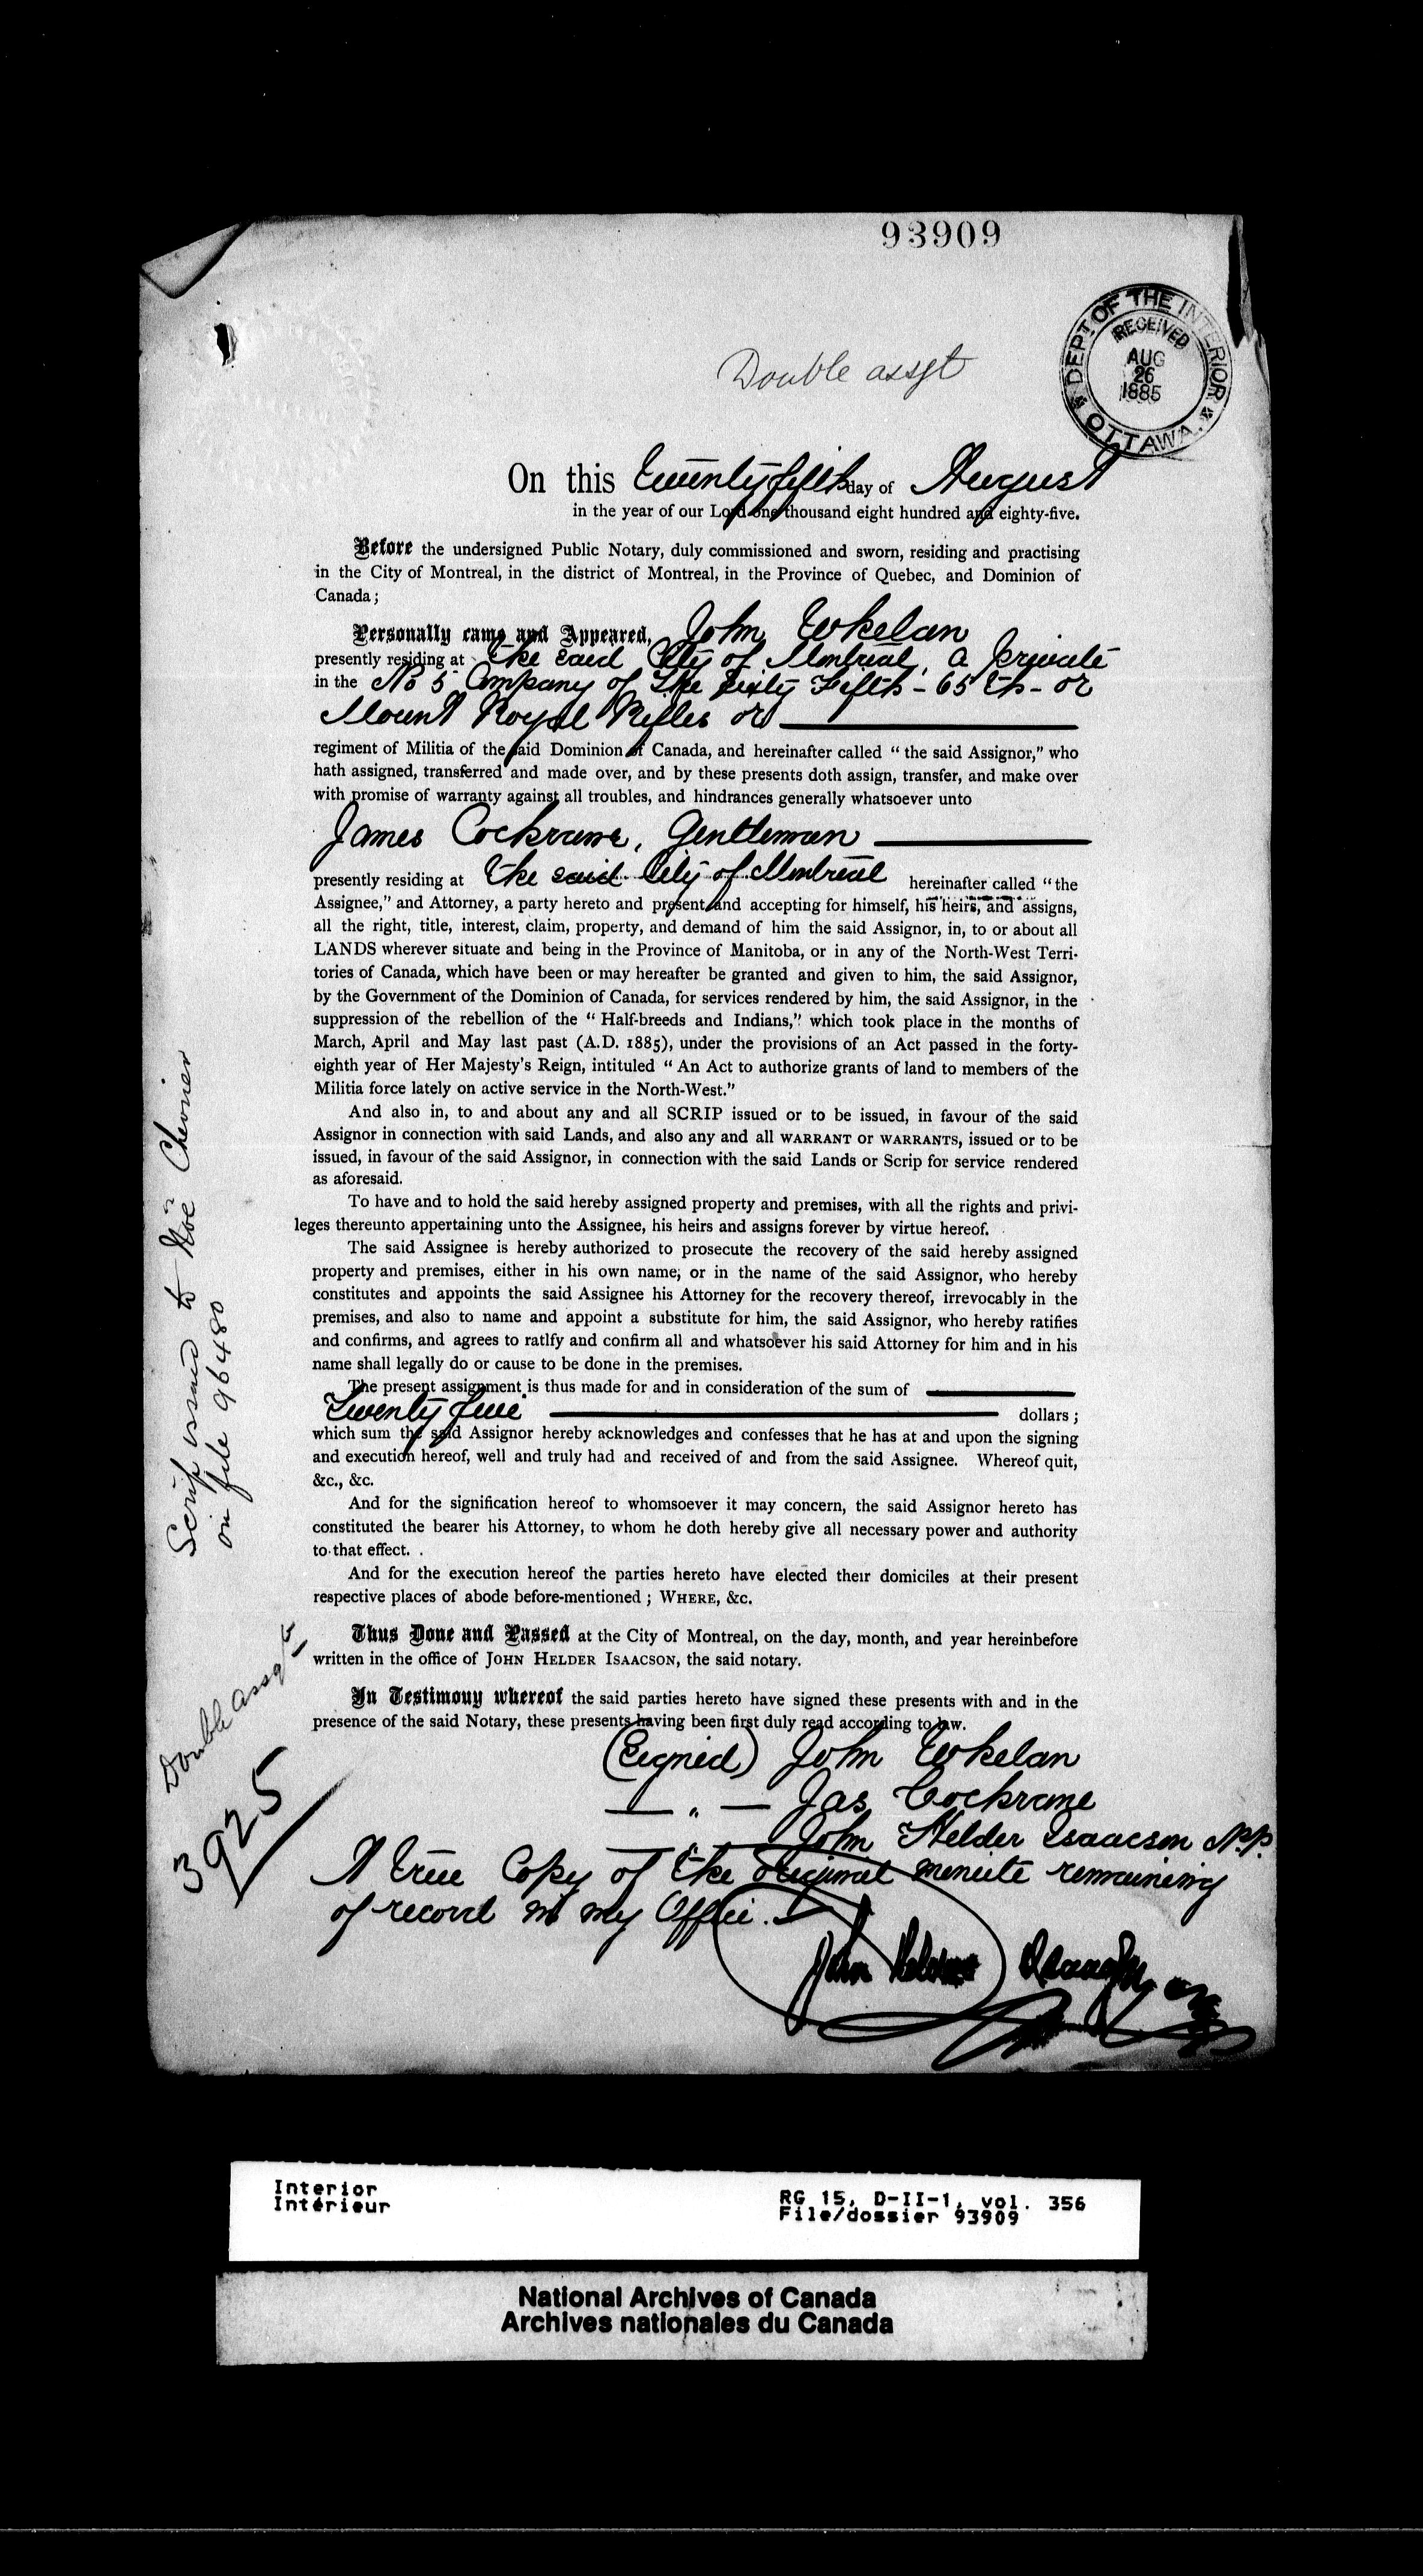 93909
DEPT OF THE INTERIOR
RECEIVED
AUG
26
1885
OTTAWA.
Double assgt
On this Twenty fifth day of August
in the year of our Lord one thousand eight hundred and eighty-five.
Before the undersigned Public Notary, duly commissioned and sworn, residing and practising
in the City of Montreal, in the district of Montreal, in the Province of Quebec, and Dominion of
Canada;
Personally came and Appeared, John Whelan
presently residing at the said City of Montreal, a private
in the No 5 Company of The Sixty Fifth - 65th - or
Mount Royal Rifles or
regiment of Militia of the said Dominion of Canada, and hereinafter called "the said Assignor," who
hath assigned, transferred and made over, and by these presents doth assign, transfer, and make over
with promise of warranty against all troubles, and hindrances generally whatsoever unto
James Cochrane, Gentleman
presently residing at the said City of Montreal hereinafter called "the
Assignee," and Attorney, a party hereto and present and accepting for himself, his heirs, and assigns,
all the right, title, interest, claim, property, and demand of him the said Assignor, in, to or about all
LANDS wherever situate and being in the Province of Manitoba, or in any of the North-West Terri-
tories of Canada, which have been or may hereafter be granted and given to him, the said Assignor,
by the Government of the Dominion of Canada, for services rendered by him, the said Assignor, in the
suppression of the rebellion of the "Half-breeds and Indians," which took place in the months of
March, April and May last past (A.D. 1885), under the provisions of an Act passed in the forty-
eighth year of Her Majesty's Reign, intituled "An Act to authorize grants of land to members of the
Militia force lately on active service in the North-West."
And also in, to and about any and all SCRIP issued or to be issued, in favour of the said
Assignor in connection with said Lands, and also any and all WARRANT OR WARRANTS, issued or to be
issued, in favour of the said Assignor, in connection with the said Lands or Scrip for service rendered
as aforesaid.
To have and to hold the said hereby assigned property and premises, with all the rights and privi-
leges thereunto appertaining unto the Assignee, his heirs and assigns forever by virtue hereof.
The said Assignee is hereby authorized to prosecute the recovery of the said hereby assigned
property and premises, either in his own name, or in the name of the said Assignor, who hereby
constitutes and appoints the said Assignee his Attorney for the recovery thereof, irrevocably in the
premises, and also to name and appoint a substitute for him, the said Assignor, who hereby ratifies
and confirms, and agrees to ratify and confirm all and whatsoever his said Attorney for him and in his
name shall legally do or cause to be done in the premises.
The present assignment is thus made for and in consideration of the sum of
Twenty five dollars;
which sum the said Assignor hereby acknowledges and confesses that he has at and upon the signing
and execution hereof, well and truly had and received of and from the said Assignee. Whereof quit,
&c., &c.
And for the signification hereof to whomsoever it may concern, the said Assignor hereto has
constituted the bearer his Attorney, to whom he doth hereby give all necessary power and authority
to that effect.
And for the execution hereof the parties hereto have elected their domiciles at their present
respective places of abode before-mentioned; WHERE, &c.
Thus Done and Passed at the City of Montreal, on the day, month, and year hereinbefore
written in the office of JOHN HELDER ISAACSON, the said notary.
In Testimony whereof the said parties hereto have signed these presents with and in the
presence of the said Notary, these presents having been first duly read according to law.
(Signed) John Whelan
— " — Jas Cochrane
— " John Helder Isaacson N.P.
A true Copy of the original minute remaining
of record in my Office.
John Helder Isaacson
Scrip issued to Noë Chevrier
on file 96480
Double assgt
3925
Interior
Intérieur
RG 15, D-II-1, vol. 356
File/dossier 93909
National Archives of Canada
Archives nationales du Canada